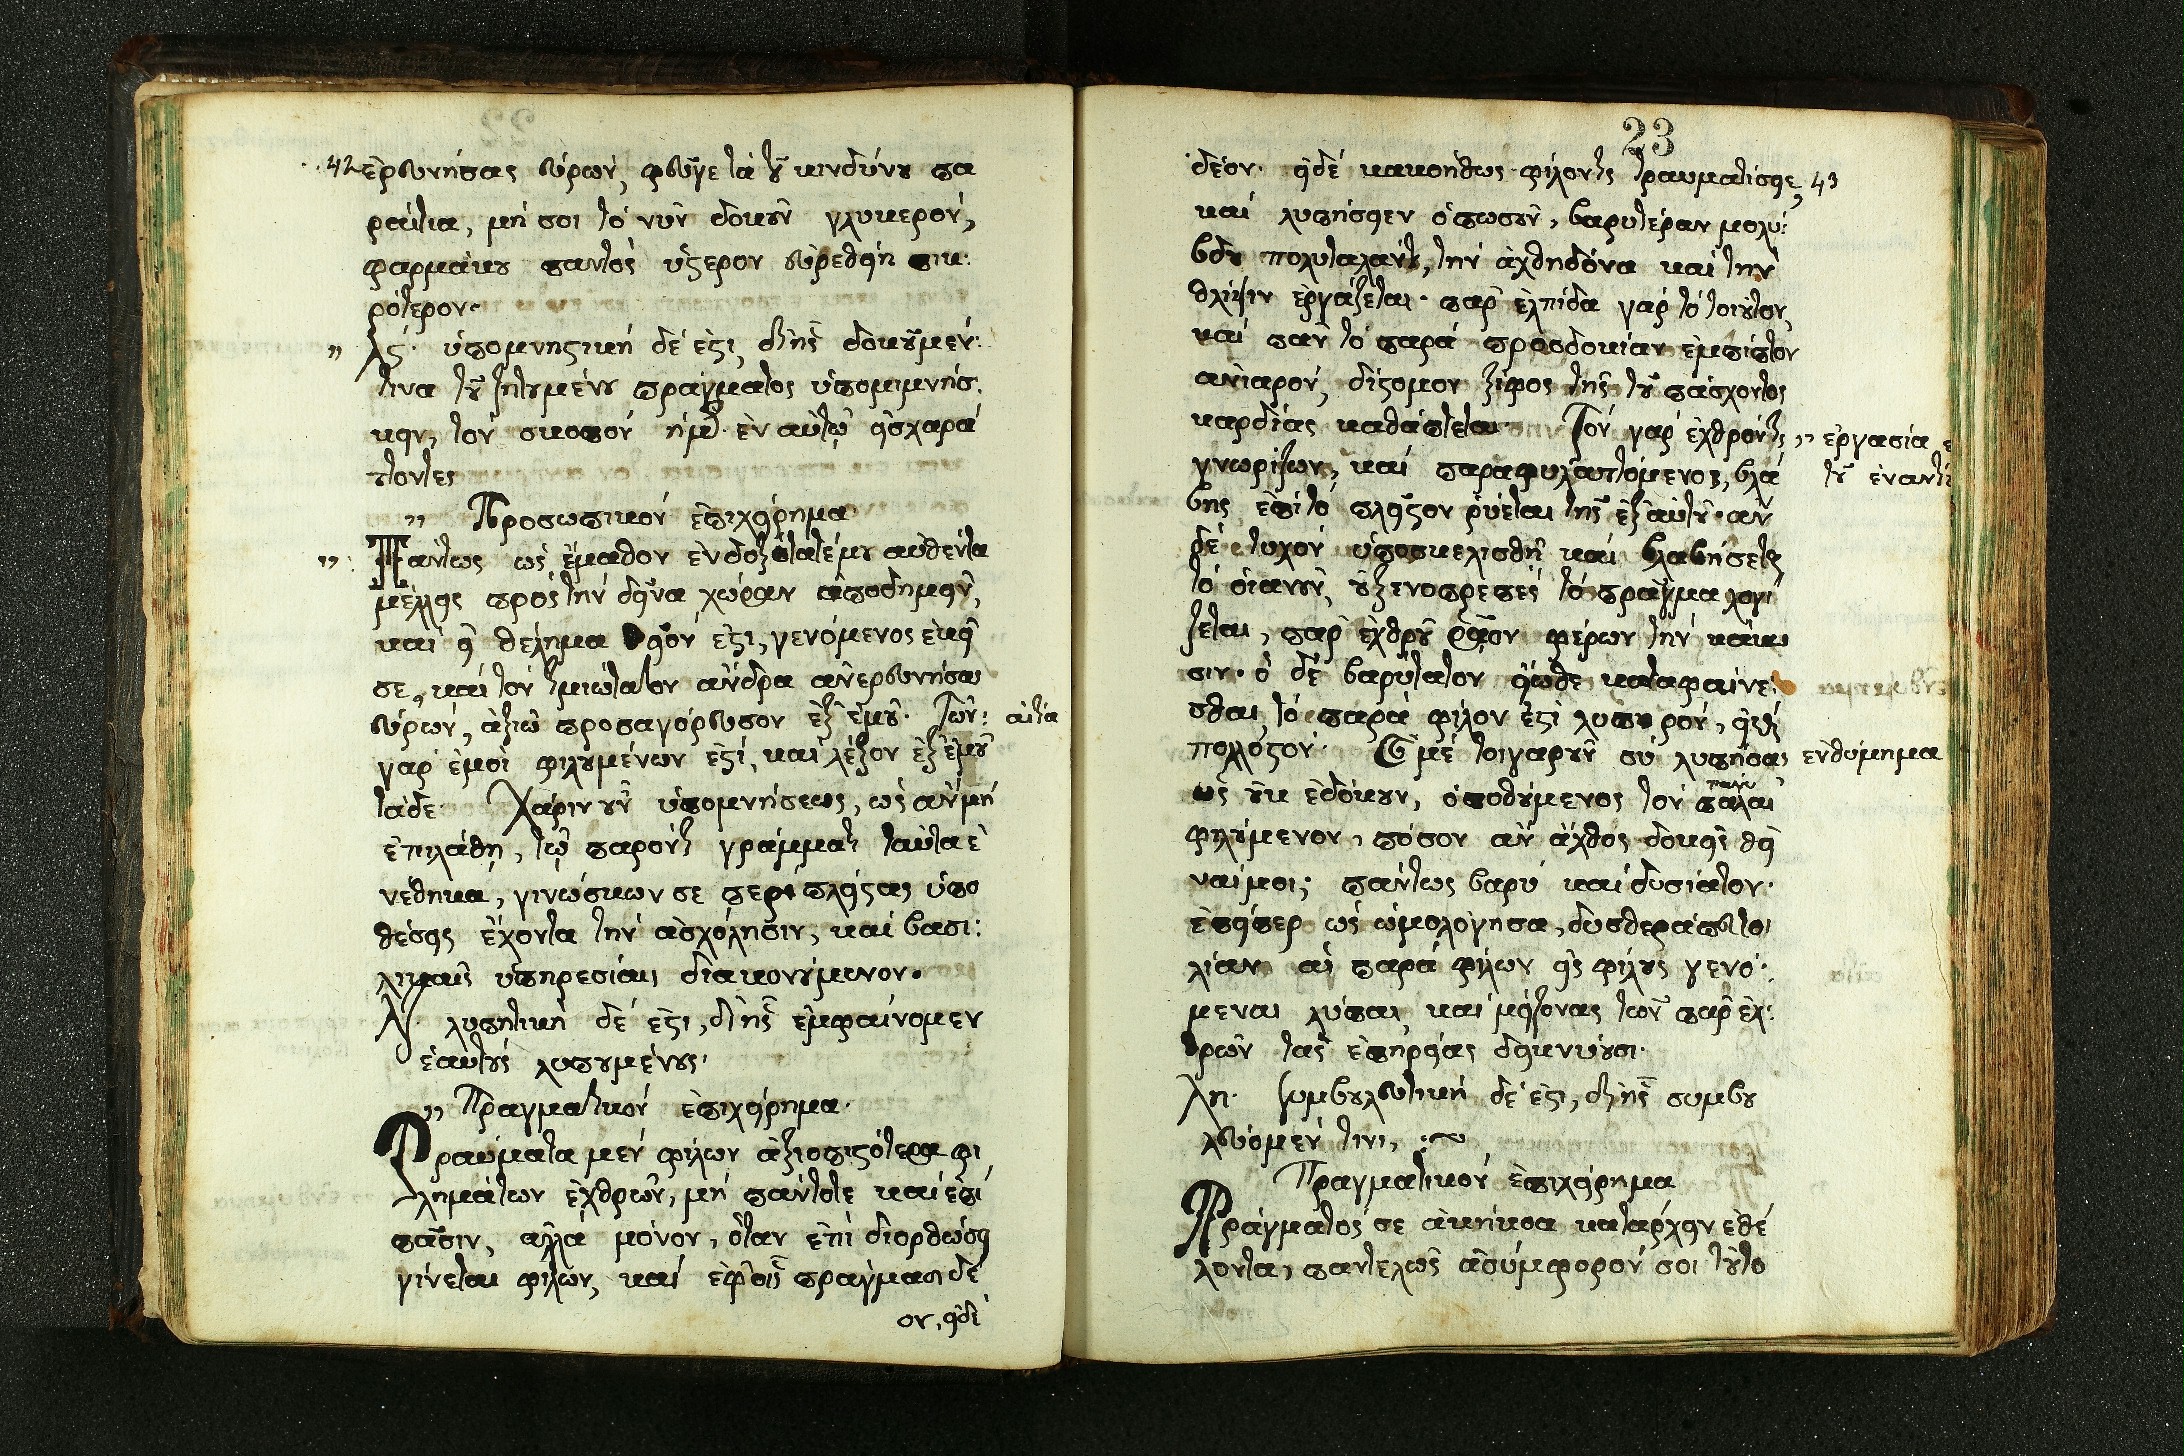 42 ἐρευνήσας εὑρὼν, φεῦγε τὰ τοῦ κινδύνου πα
ραίτια, μή σοι τὸ νῦν δοκοῦν γλυκερὸν,
φαρμάκου παντὸς ὕστερον εὑρεθείη πικ:
ρότερον.
λϛ. ὑπομνηστικὴ δέ ἐστι, δι' ἧς δοκοῦμέν:
τινα τοῦ ζητουμένου πράγματος ὑπομιμνήσ:
κειν, τὸν σκοπὸν ἡμῶν ἐν αὐτῷ εἰσχαρά
ττοντες
" Προσωπικὸν ἐπιχείρημα
Πάντως ὡς ἔμαθον ἐνδοξότατέ μου αὐθέντα
μέλλεις πρὸς τὴν δεῖνα χώραν ἀποδημεῖν,
καὶ εἰ θέλημα θεῖόν ἐστι, γενόμενος ἐκεῖ
σε, καὶ τὸν τιμιώτατον ἄνδρα ἀνερευνήσας
εὑρὼν, ἀξιῶ προσαγόρευσον ἐξ ἐμοῦ. Τῶν: αἰτία
γὰρ ἐμοὶ φιλουμένων ἐστὶ, καὶ λέξον ἐξ ἐμοῦ
τάδε. Χάριν οὖν ὑπομνήσεως, ὡς ἂν μὴ
ἐπιλάθῃ, τῷ παρόντι γράμματι ταῦτα ἐ
νέθηκα, γινώσκων σε περὶ πλείστας ὑπο
θέσεις ἔχοντα τὴν ἀσχόλησιν, καὶ βασι:
λικαῖς ὑπηρεσίαις διακονούμενον.
λζ λυπητικὴ δέ ἐστι, δι' ἧς ἐμφαίνομεν
ἑαυτοὺς λυπουμένους.
" Πραγματικὸν ἐπιχείρημα.
Τραύματα μὲν φίλων ἀξιοπιστότερα φι
λημάτων ἐχθρῶν, μὴ πάντοτε καὶ ἐπὶ
πᾶσιν, ἀλλὰ μόνον, ὅταν ἐπὶ διορθώσει
γίνεται φίλων, καὶ ἐφ' οἷς πράγμασι δέ
ον, εἰ δὲ
23
δέον. εἰ δὲ κακοήθως φίλον τὶς τραυματίσειε, 43
καὶ λυπήσειεν ὁπωσοῦν, βαρυτέραν μολύ:
βδου πολυταλάντου, τὴν ἀχθηδόνα καὶ τὴν
θλίψιν ἐργάζεται. παρ' ἐλπίδα γὰρ τὸ τοιοῦτον,
καὶ πᾶν τὸ παρὰ προσδοκίαν ἐμπίπτον
ἀνιαρὸν, δίστομον ξίφος τῆς τοῦ πάσχοντος
καρδίας καθάπτεται. Τὸν γὰρ ἐχθρόν τις " ἐργασία ἐ
γνωρίζων, καὶ παραφυλαττόμενος, βλά τοῦ ἐναντί
βης ἐπὶ τὸ πλεῖστον ῥύεται τῆς ἐξ αὐτοῦ. ἂν
δὲ τυχὸν ὑποσκελισθῇ καὶ βλαβήσεται
τὸ οἱανοῦν, οὐ ξενοπρεπὲς τὸ πρᾶγμα λογί
ζεται, παρ' ἐχθροῦ ῥᾷον φέρων τὴν κάκω
σιν. ὃ δὲ βαρύτατον εἴωθε καταφαίνε:
σθαι, τὸ παρὰ φίλου ἐστὶ λυπηρὸν,
πολλοστόν. Ἐμὲ τοιγαροῦν σὺ λυπήσας ἐνθύμημα
ὡς οὐκ ἐδόκουν, ὁ ποθούμενος τὸν πάλαι πάνυ
φιλούμενον, πόσον ἂν ἄχθος δοκεῖς θεῖ
ναί μοι; πάντως βαρὺ καὶ δυσίατον.
ἐπείπερ ὡς ὡμολόγησα, δυσθεράπευτοι
λίαν αἱ παρὰ φίλων εἰς φίλους γενό:
μεναι λύπαι, καὶ μείζονας τῶν παρ' ἐχ:
θρῶν τὰς ἐπηρείας δεικνύουσι.
λη. Συμβουλευτικὴ δέ ἐστι, δι' ἧς συμβου
λεύομέν τινι,
Πραγματικὸν ἐπιχείρημα
Πράγματός σε ἀκήκοα κατάρχειν ἐθέ
λοντα, παντελῶς ἀσύμφορόν σοι τοῦτο